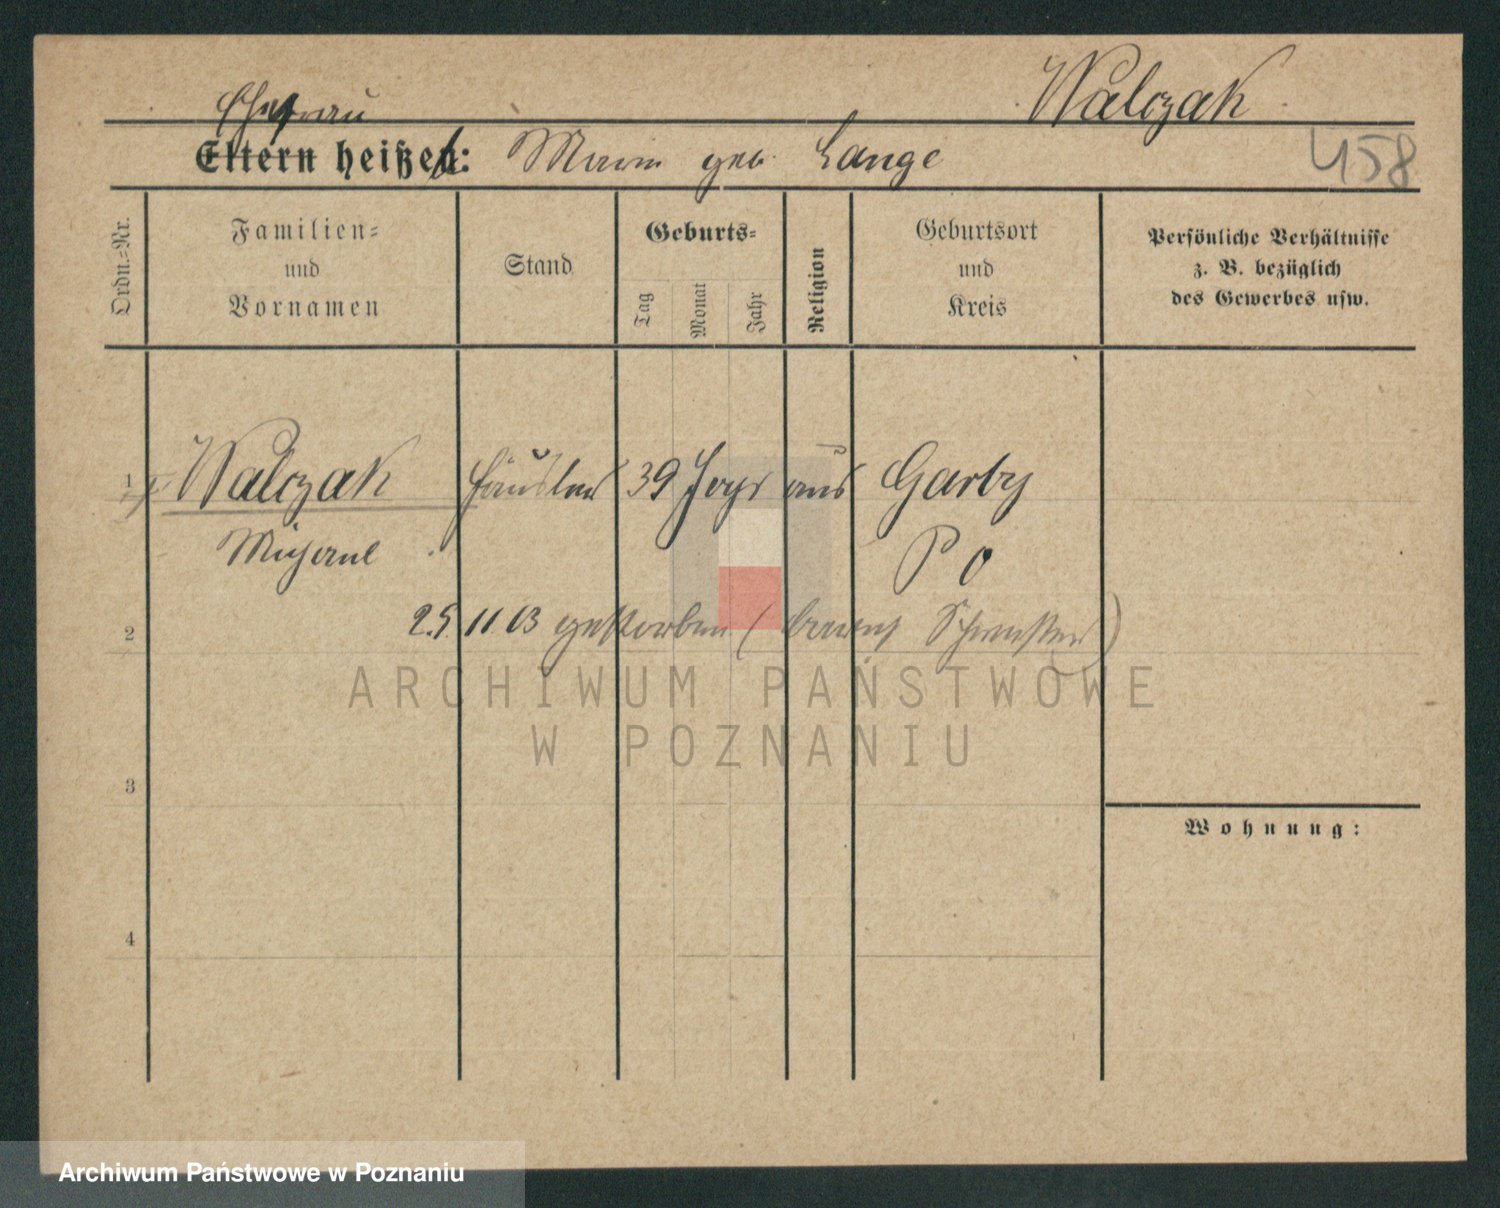 Walczak
Ehefrau
Eltern heißen: Marie geb. Lange
458
Ordn.-Nr.
Familien-
und
Vornamen
Stand
Geburts-
Tag
Monat
Jahr
Religion
Geburtsort
und
Kreis
Persönliche Verhältnisse
z. B. bezüglich
des Gewerbes usw.
1 Walczak Häusler 39 Jahr aus Garby
Michael P O
2 25 11 03 gestorben (
3
4
Wohnung:
ARCHIWUM PAŃSTWOWE
W POZNANIU
Archiwum Państwowe w Poznaniu